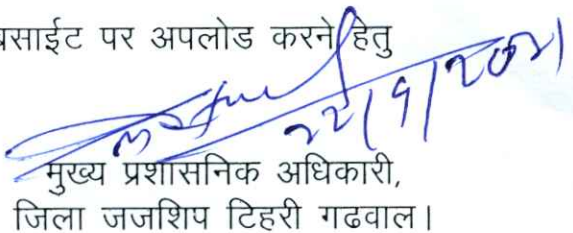 बसाईट पर अपलोड करने हेतु
22/9/2021
मुख्य प्रशासनिक अधिकारी,
जिला जजशिप टिहरी गढवाल।